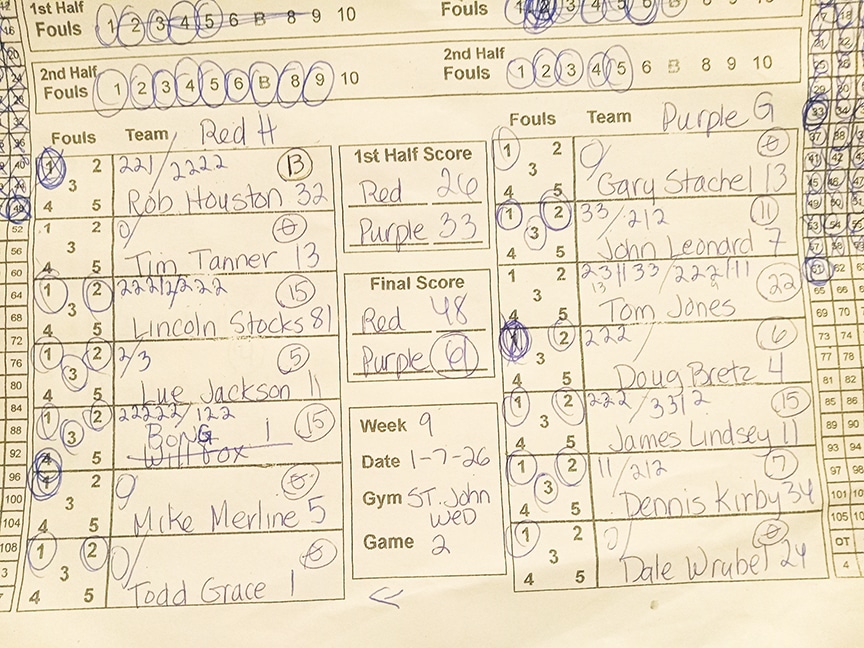 1st Half Fouls 1 2 3 4 5 6 B 8 9 10
Fouls 1 2 3 4 5 6 B 8 9 10
2nd Half Fouls 1 2 3 4 5 6 B 8 9 10
2nd Half Fouls 1 2 3 4 5 6 B 8 9 10
Fouls Team Red H
1 2 3 4 5 221/2222 13
Rob Houston 32
1 2 3 4 5 0/ 0
Tim Tanner 13
1 2 3 4 5 15
Lincoln Stocks 81
1 2 3 4 5 2/3 5
Lue Jackson 11
1 2 3 4 5 22222/122 15
BonG 1
Will Fox
1 2 3 4 5 0/ 0
Mike Merline 5
1 2 3 4 5 0/ 0
Todd Grace 1
1st Half Score
Red 26
Purple 33
Final Score
Red 48
Purple 61
Week 9
Date 1-7-26
Gym ST. John
WED
Game 2
Fouls Team Purple G
1 2 3 4 5 0/ 0
Gary Stachel 13
1 2 3 4 5 33/212 11
John Leonard 7
1 2 3 4 5 231133/222211 22
13 9
Tom Jones
1 2 3 4 5 222/ 6
Doug Bretz 4
1 2 3 4 5 222/3312 15
James Lindsey 11
1 2 3 4 5 11/212 7
Dennis Kirby 34
1 2 3 4 5 0/ 0
Dale Wrubel 24
52
56
60
64
68
72
76
80
84
88
92
96
100
104
108
65 66
69 70
73 74
77 78
81 82
85 86
89 90
93 94
97 98
101 10
105 10
OT
4